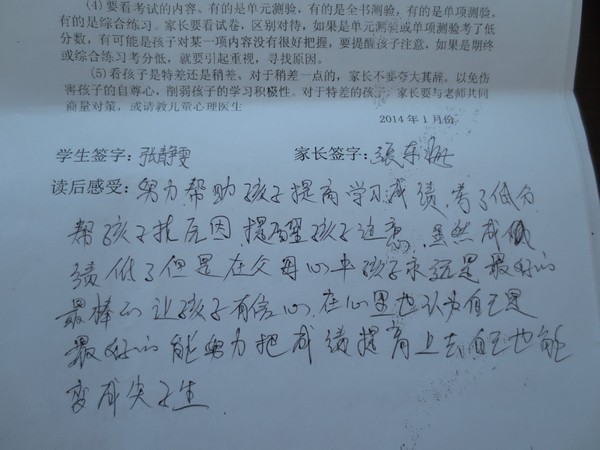 (4)要看考试的内容。有的是单元测验，有的是全书测验，有的是单项测验，
有的是综合练习。家长要看试卷，区别对待，如果是单元测验或单项测验考了低
分数，有可能是孩子对某一项内容没有很好把握，要提醒孩子注意，如果是期终
或综合练习考分低，就要引起重视，寻找原因。
(5)看孩子是特差还是稍差。对于稍差一点的，家长不要夸大其辞，以免伤
害孩子的自尊心，削弱孩子的学习积极性。对于特差的孩子，家长要与老师共同
商量对策，或请教儿童心理医生
2014年1月份
学生签字：张静雯 家长签字：张东
读后感受：努力帮助孩子提高学习成绩，考了低分
帮孩子找原因 提醒孩子注意，虽然成
绩低了但是在父母心中孩子永远是最好的
最棒的 让孩子有信心，在心里也认为自己是
最好的 能努力把成绩提高上去 自己也能
变成尖子生.